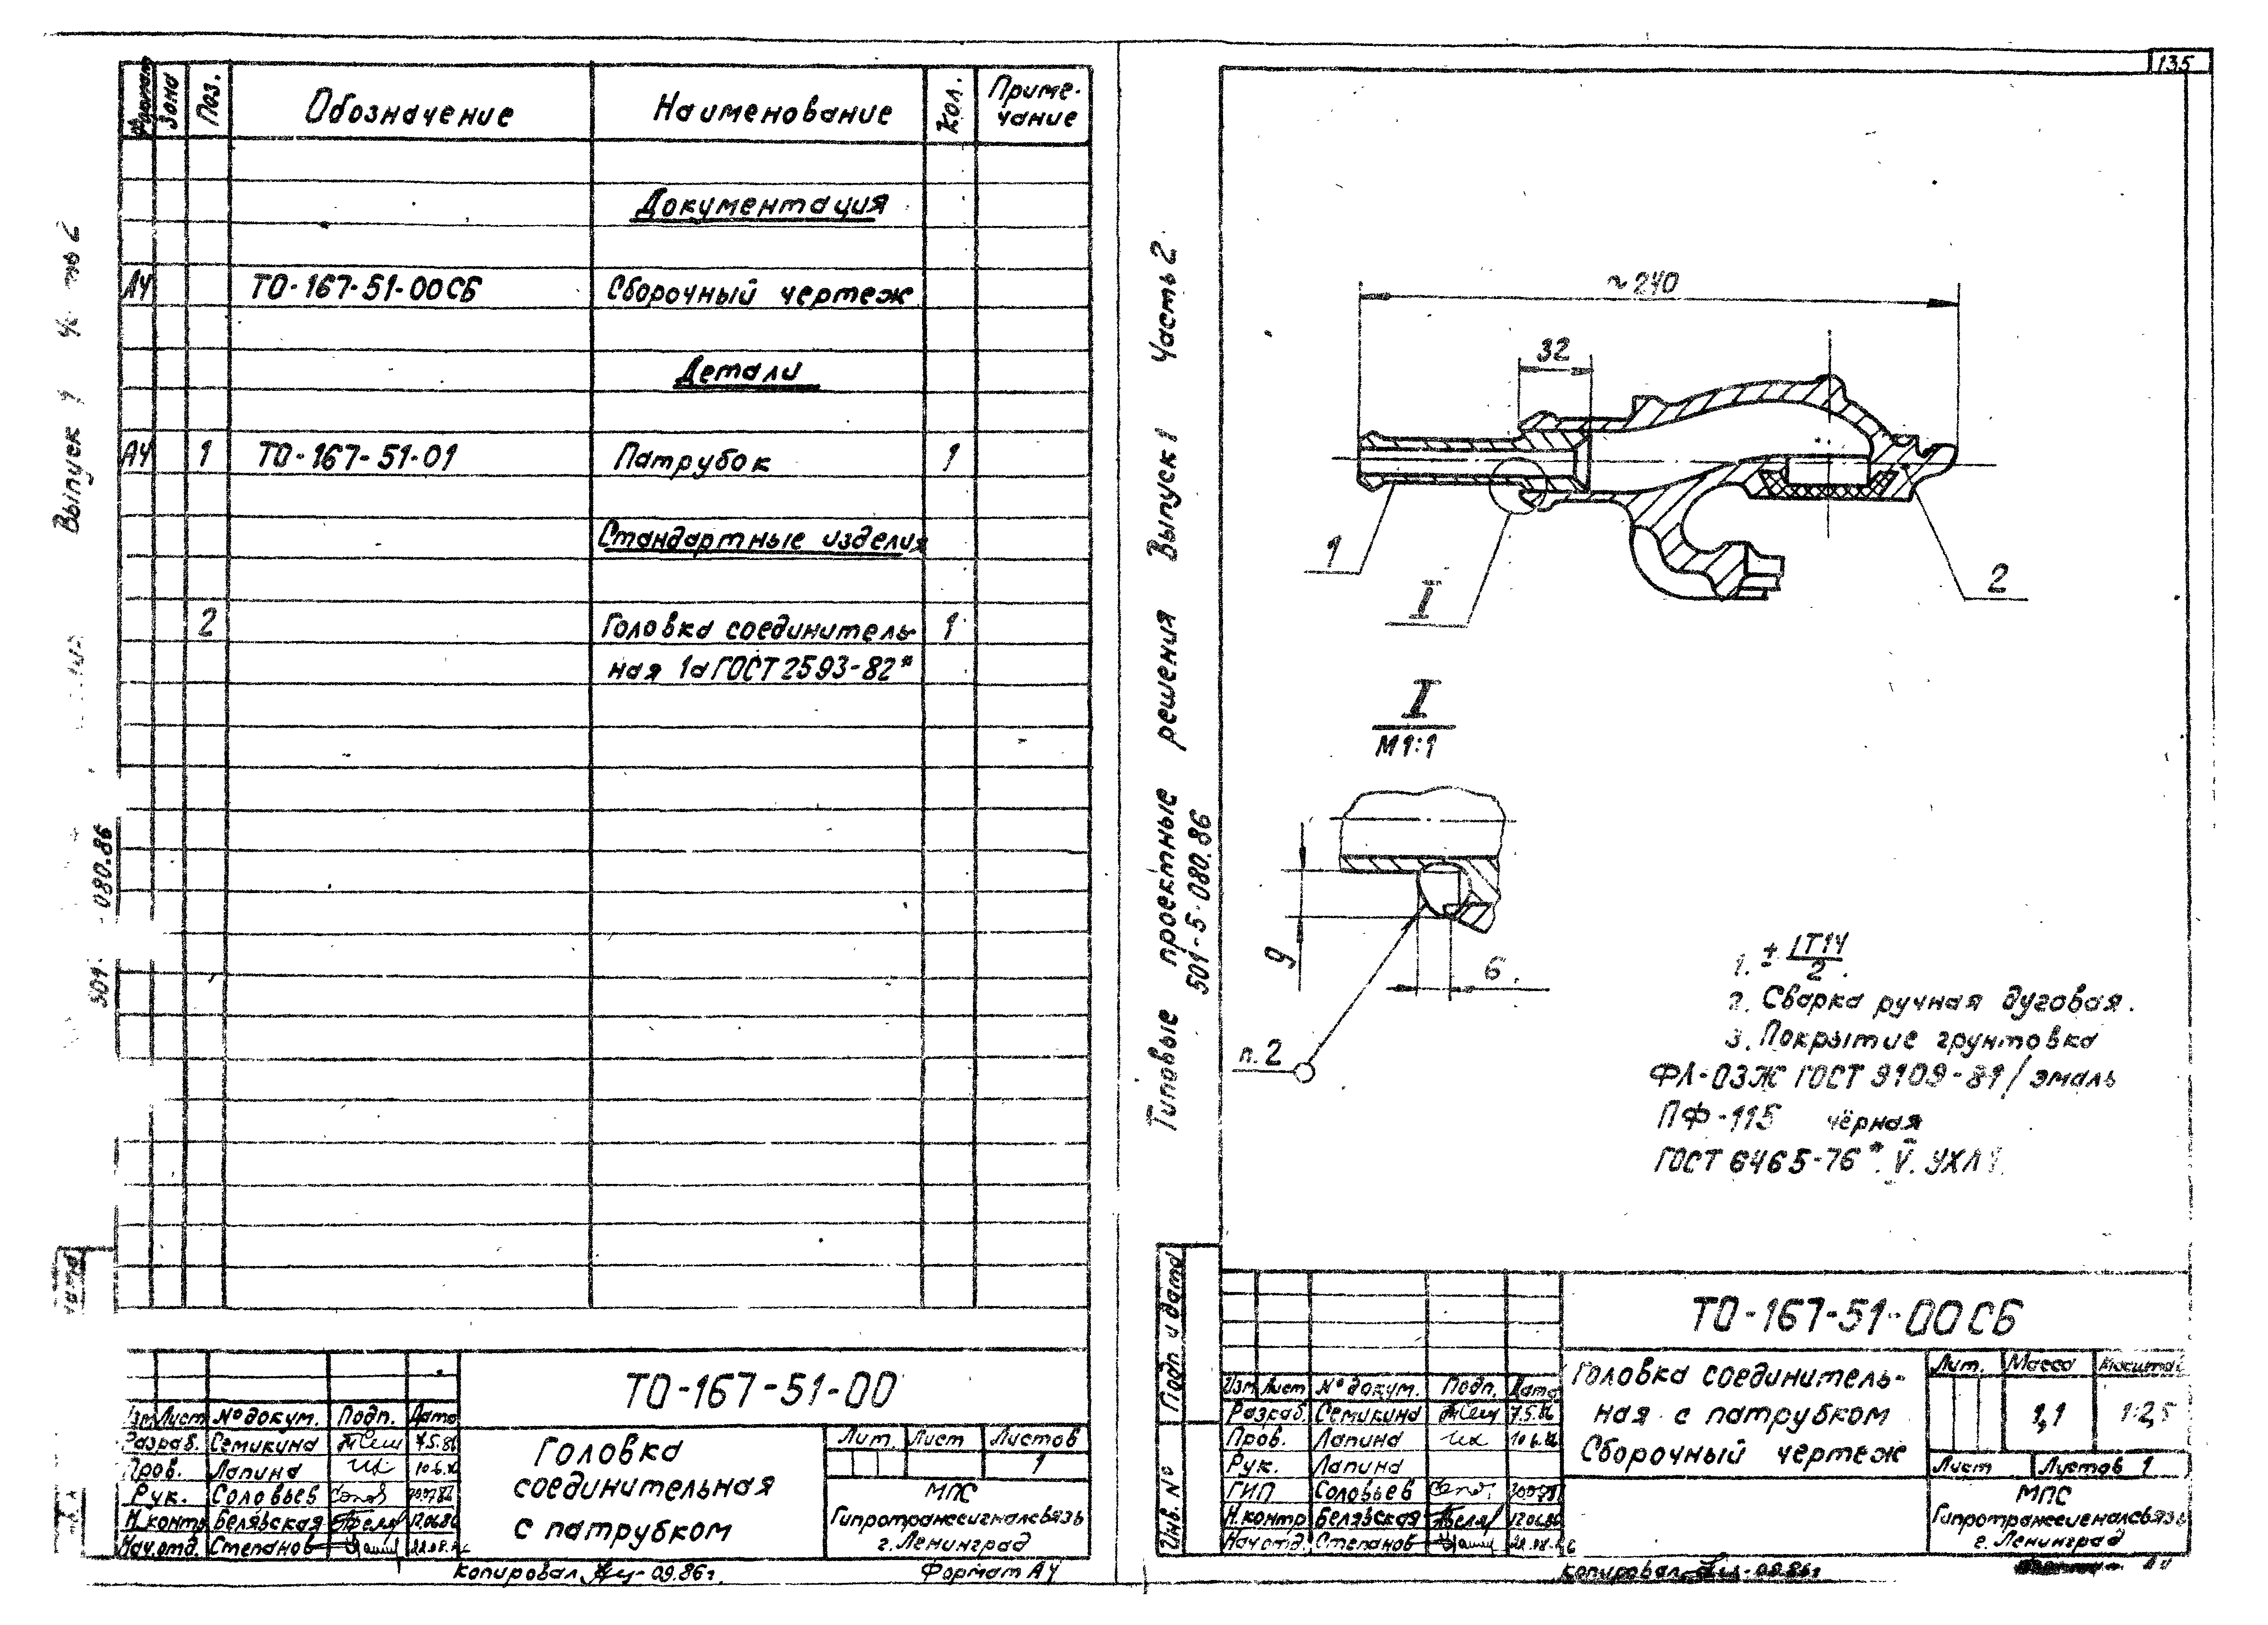 Формат
Зона
Поз.
Обозначение
Наименование
Кол.
Приме-
чание
Документация
А4 ТО-167-51-00СБ Сборочный чертеж
Детали
А4 1 ТО-167-51-01 Патрубок 1
Стандартные изделия
2 Головка соединитель- 1
ная 1а ГОСТ 2593-82*
Выпуск 1
501
080.86
ТО-167-51-00
Изм Лист № докум. Подп. Дата
Разраб. Семикина 7.5.86
Пров. Лапина 10.6.86
Рук. Соловьев
Н.контр Белявская 12.06.86
Нач.отд. Степанов
Головка
соединительная
с патрубком
Лит. Лист Листов
1
МПС
Гипротранссигналсвязь
г. Ленинград
Копировал 09.86г.
Формат А4
135
Типовые проектные решения Выпуск 1 Часть 2
501-5-080.86
~240
32
1
I
2
I
М 1:1
9
6
п.2
1. ± IT14
2.
2. Сварка ручная дуговая.
3. Покрытие грунтовка
ФЛ-03Ж ГОСТ 9109-81/эмаль
ПФ-115 чёрная
ГОСТ 6465-76*. V. УХЛ
Подп и дата
Инв. №
ТО-167-51-00СБ
Изм Лист № докум. Подп. Дата
Разраб. Семикина 7.5.86
Пров. Лапина 10.6.86
Рук. Лапина
ГИП Соловьев
Н.контр Белявская 12.06.86
Нач отд. Степанов
Головка соединитель-
ная с патрубком
Сборочный чертеж
Лит. Масса Масштаб
1,1 1:2,5
Лист Листов 1
МПС
Гипротранссигналсвязь
г. Ленинград
Копировал 09.86г